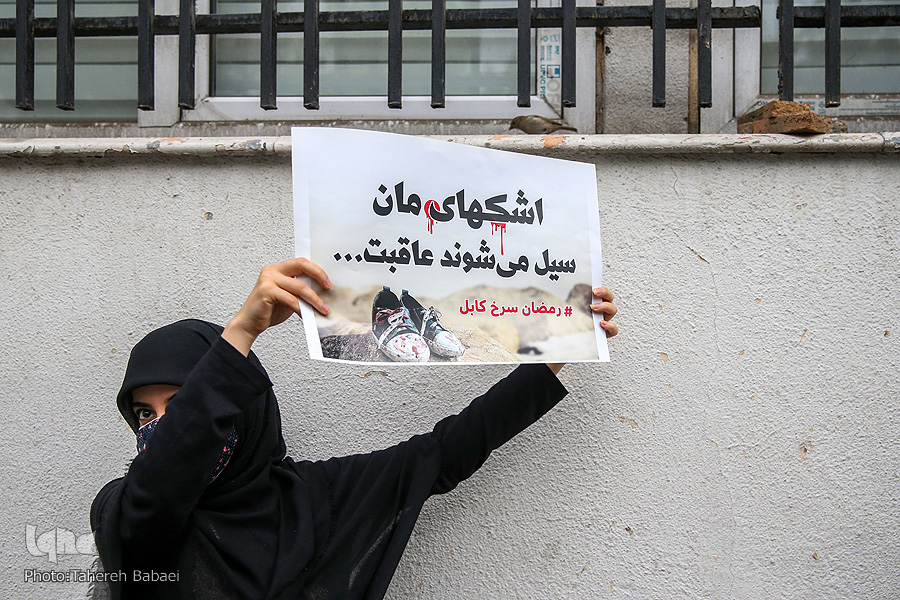 اشکهای مان
سیل می‌شوند عاقبت...
# رمضان سرخ کابل
iqna
Photo:Tahereh Babaei